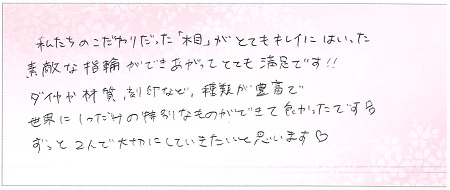 私たちのこだわりだった「木目」がとてもキレイにはいった
素敵な指輪ができあがってとても満足です!!
ダイヤや材質、刻印など、種類が豊富で
世界に1つだけの特別なものができて良かったです
ずっと2人で大切にしていきたいと思います♡